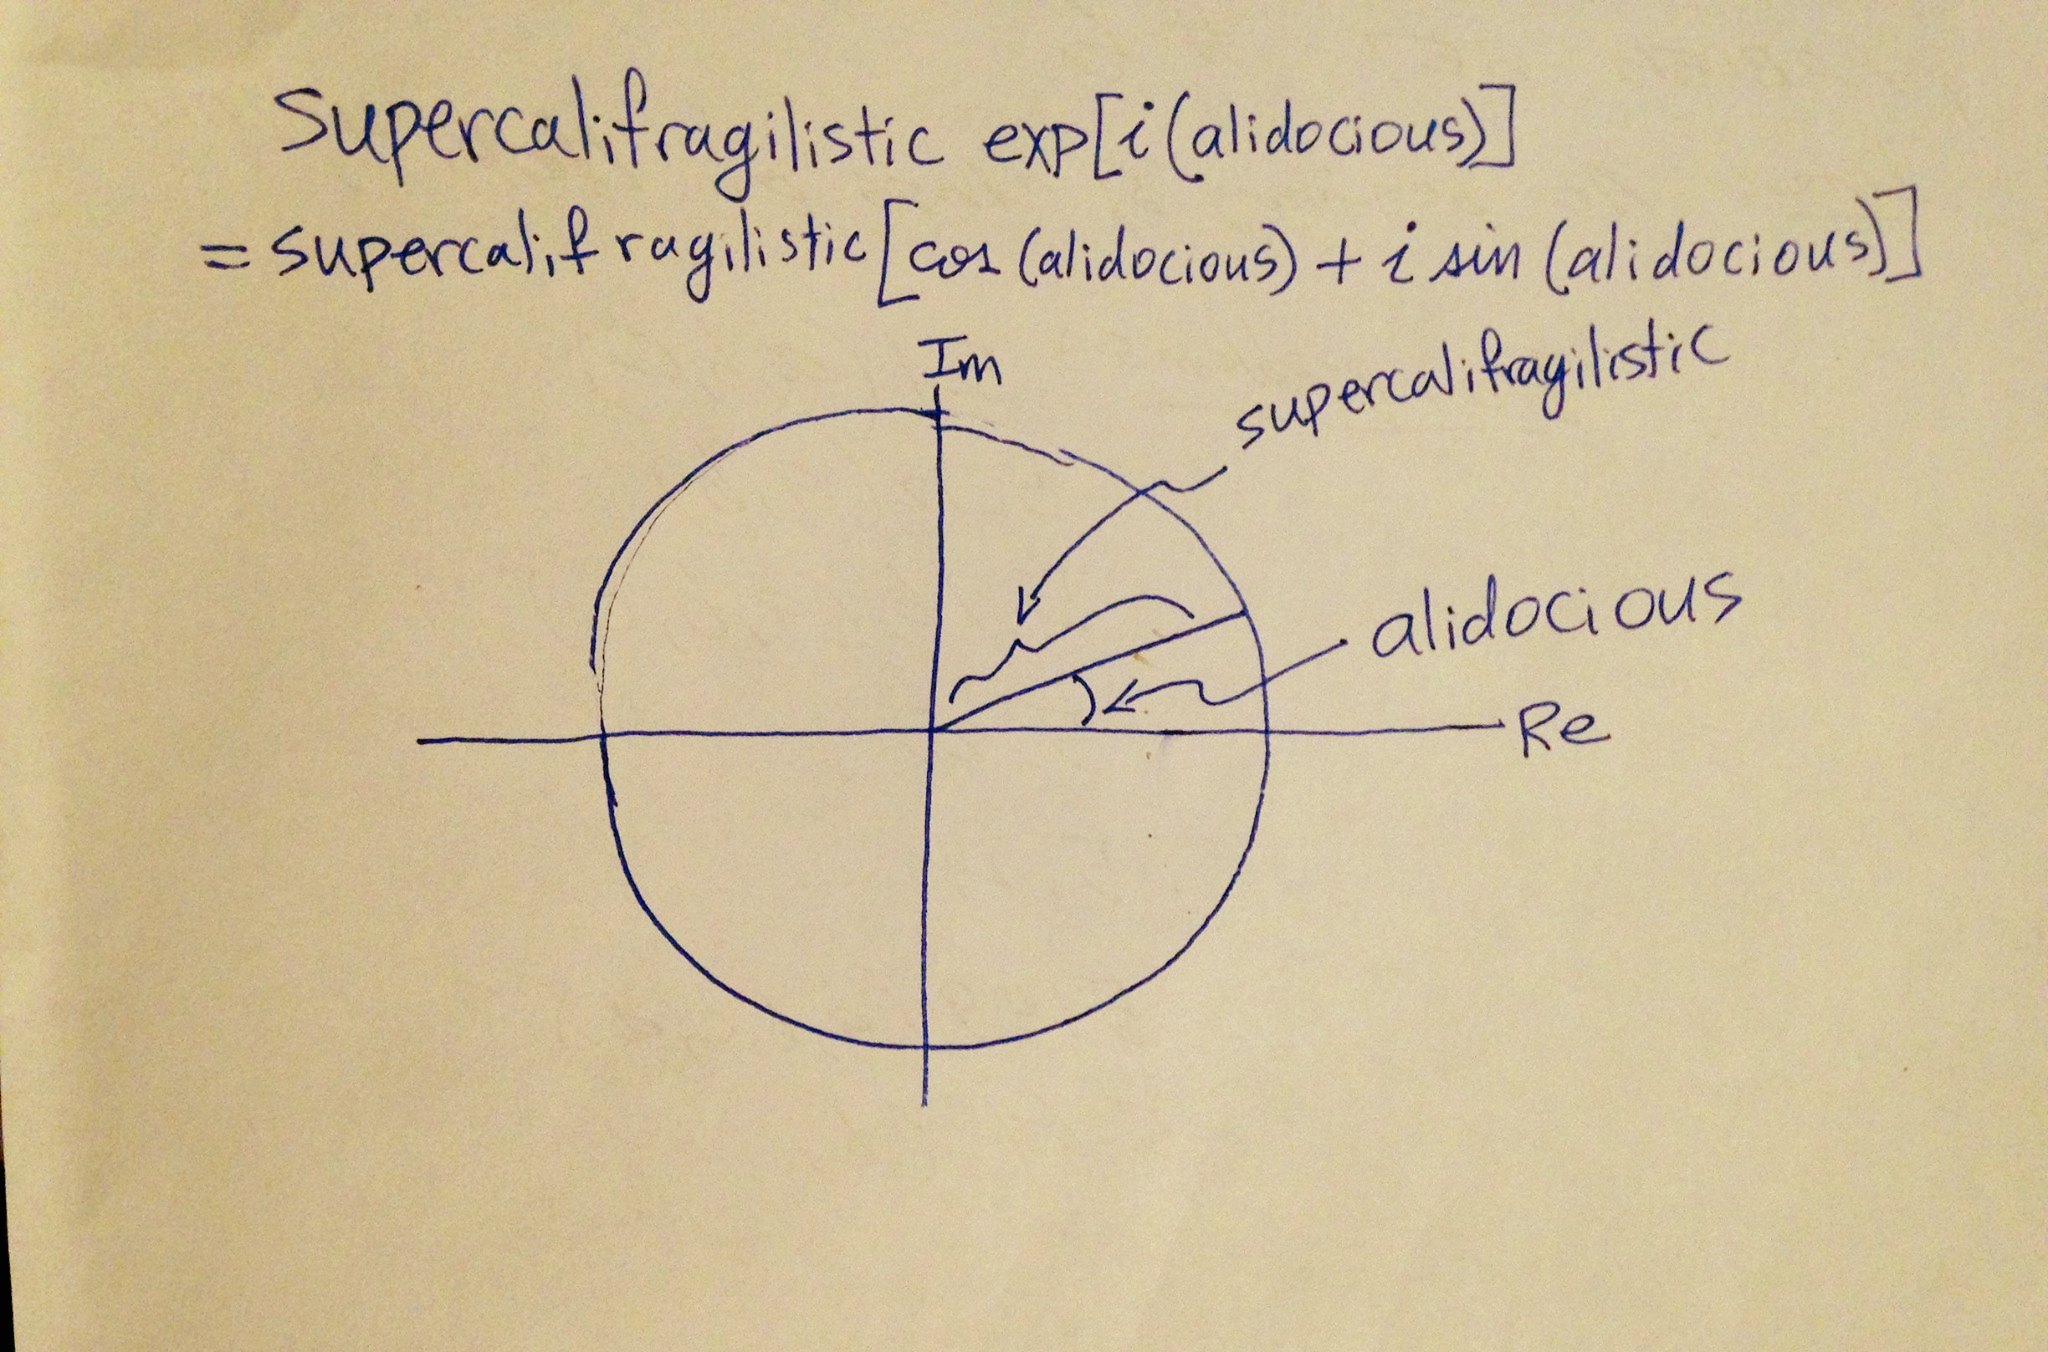 Supercalifragilistic exp[i(alidocious)]
= supercalifragilistic[cos(alidocious) + i sin(alidocious)]
Im
supercalifragilistic
alidocious
Re